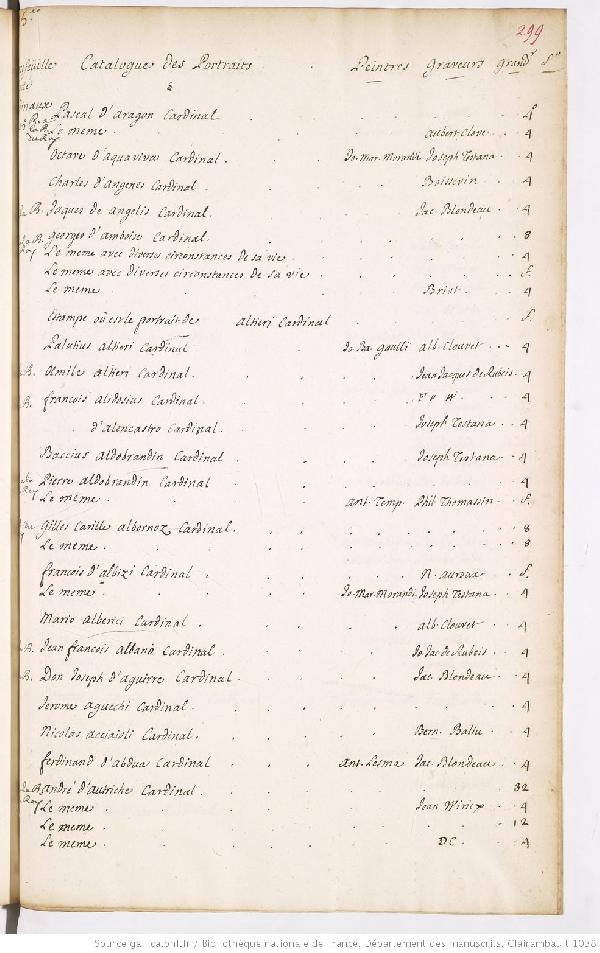 299
Catalogue Des Portraits Peintres Graveurs Grandr
a
Pascal d'aragon Cardinal f
Le meme Aubert Clove 4
Octave d'aquaviva Cardinal Jo. Mar. Morandi Joseph Testana 4
Charles d'angenes Cardinal Boissevin 4
Jaques de angelis Cardinal Jac. Blondeau 4
georges d'amboise Cardinal 8
Le meme avec diverses circonstances de sa vie 4
Le meme avec diverses circonstances de sa vie f.
Le meme Briot 4
Estampe où est le portrait de Altieri Cardinal f.
Palutius altieri Cardinal Jo. Ba. gaulli alb. Clouvet 4
B. Emile altieri Cardinal Jean Jacques De Rubeis 4
B. françois alidosius Cardinal F v W. 4
d'alencastro Cardinal Joseph Testana 4
Baccius aldobrandin Cardinal Joseph Testana 4
Pierre aldobrandin Cardinal 4
Le meme Ant. Temp. Phil. Thomassin f.
Gilles Carille albornoz Cardinal 8
Le meme 8
françois d'albizi Cardinal N. auroux f.
Le meme Jo. Mar. Morandi Joseph Testana 4
Mario Alberici Cardinal alb. Clouvet 4
B. Jean françois albano Cardinal Jo Jac de Rubeis 4
B. Don Joseph d'aguirre Cardinal Jac. Blondeau 4
Jerome aguechi Cardinal 4
Nicolas acciaioli Cardinal Bern. Balliu 4
ferdinand d'abdua Cardinal Ant. Lesma Jac. Blondeau 4
andré d'autriche Cardinal 32
Le meme Jean Wirix 4
Le meme 12
Le meme DC. 4
Source gallica.bnf.fr / Bibliothèque nationale de France. Département des manuscrits. Clairambault 1038